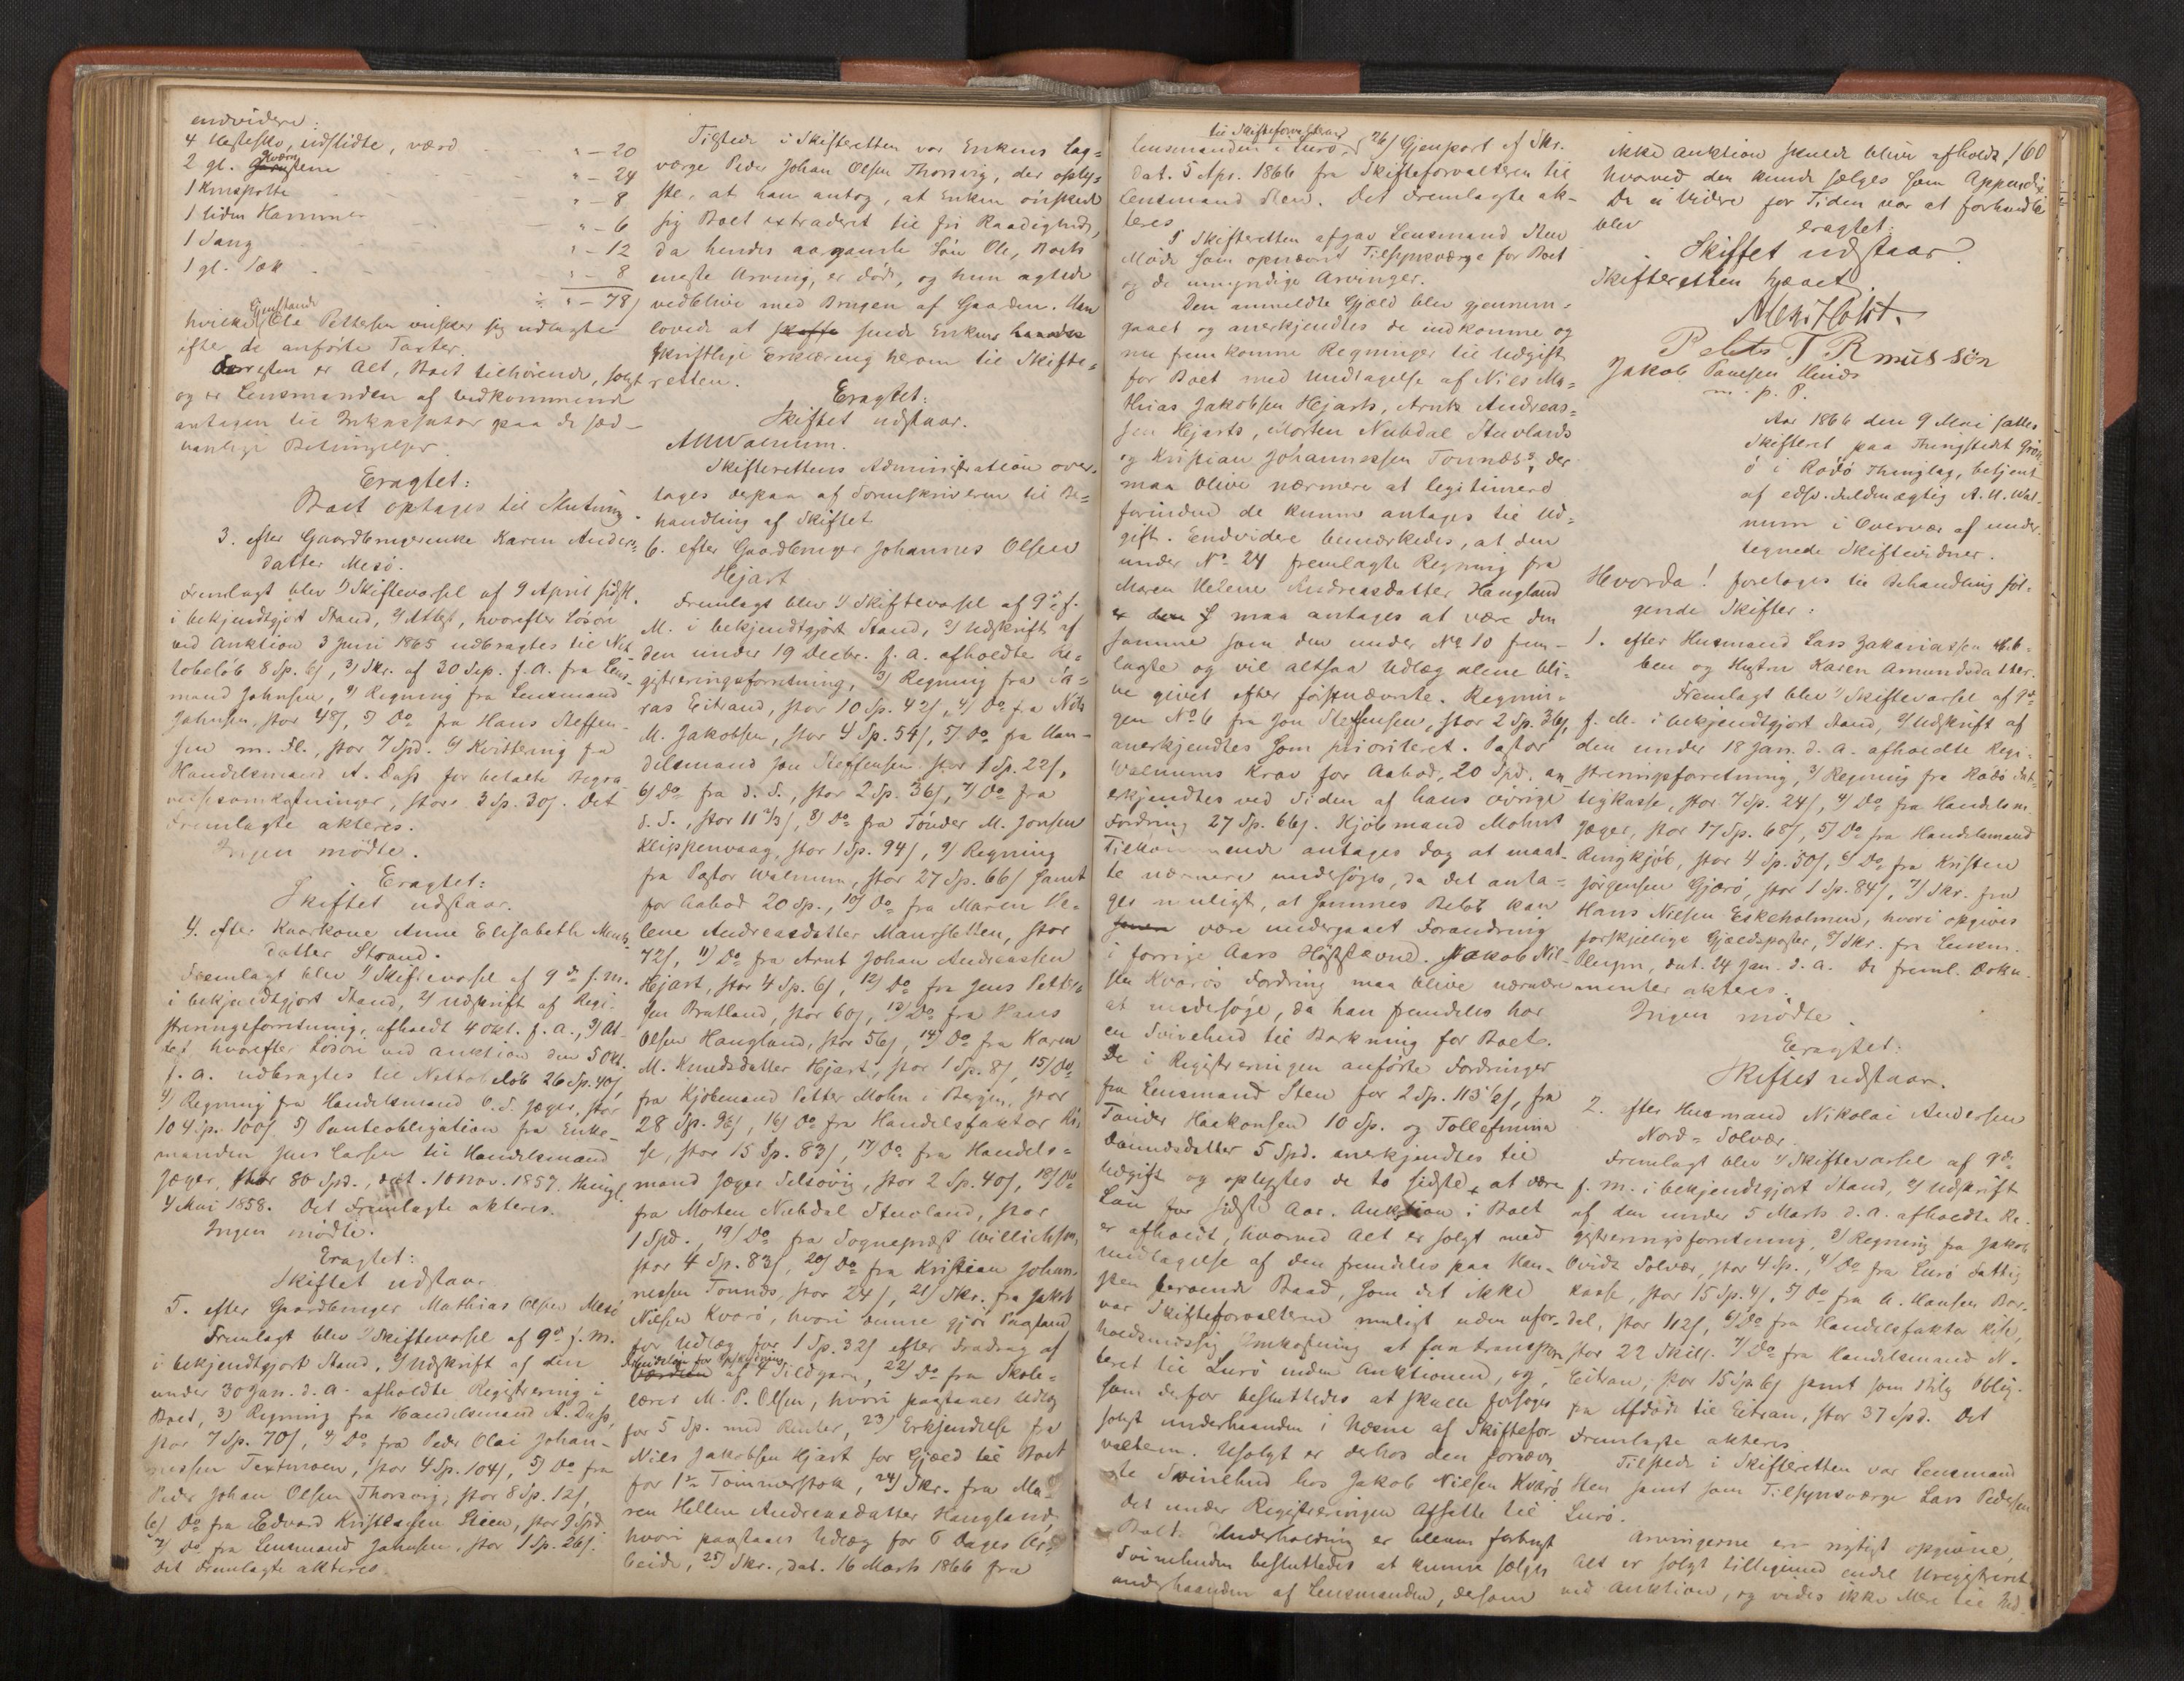 endvidere:
4 Hestesko, udslidte, værd " - 20
2 gl. Kværnstene " - 24
1 Kruspotte " - 8
1 liden Hammer " - 6
1 Tang " - 12
1 gl. Sæk " - 8
" - 78/
hvilke Gjenstande Ole Pettersen ønsker sig udlagte
efter de anførte Taxter.
Forresten er Alt, Boet tilhørende, solgt
og er Lensmanden af Vedkommende
antagen til Inkassator paa de sæd-
vanlige Betingelser.
Eragtet:
Boet optages til Slutning.
3. efter Gaardbrugerenke Karen Anders-
datter Mesö.
Fremlagt blev 1) Skiftevarsel af 9 April sidstl.
i bekjendtgjort Stand, 2) Attest, hvorefter Lösöre
ved Auktion 3 Juni 1865 udbragtes til Net-
tobeløb 8 Sp. 6/, 3) Skr. af 30 Sep. f. A. fra Lens-
mand Johnsen, 4) Regning fra Lensmand
Johnsen, stor 48/, 5) Do fra Hans Steffen-
sen m. Fl., stor 7 Spd. 6) Kvittering fra
Handelsmand A. Dass for betalte Begra-
velsesomkostninger, stor 3 Sp. 30/. Det
Fremlagte akteres.
Ingen mödte.
Eragtet:
Skiftet udstaar.
4. efter Kaarkone Anne Elisabeth Monts-
datter Strand.
Fremlagt blev 1) Skiftevarsel af 9de f. M.
i bekjendtgjort Stand, 2) Udskrift af Regi-
streringsforretning, afholdt 4 Okt. f. A., 3) At-
test, hvorefter Lösöre ved Auktion den 5 Okt.
f. A. udbragtes til Nettobeløb 26 Sp. 40/
4) Regning fra Handelsmand O. S. Jæger, stor
104 Sp. 100/ 5) Panteobligation fra Enke-
manden Jens Larsen til Handelsmand
Jæger, stor 80 Spd., dat. 10 Nov. 1857. thingl.
4 Mai 1858. Det Fremlagte akteres.
Ingen mödte.
Eragtet:
Skiftet udstaar.
5. efter Gaardbruger Mathias Olsen Mesö
Fremlagt blev 1) Skiftevarsel af 9de f. M.
i bekjendtgjort Stand, 2) Udskrift af den
under 30 Jan. d. A. afholdte Registrering i
Boet, 3) Regning fra Handelsmand A. Dass,
stor 7 Sp. 70/, 4) Do fra Peder Olai Johan-
nessen Textmoen, stor 4 Sp. 104/, 5) Do fra
Peder Johan Olsen Thorsvig, stor 8 Sp. 12/,
6) Do fra Edvard Kristiansen Steen, stor 9 Spd
7) Do fra Lensmand Johnsen, stor 1 Sp. 26/.
Det Fremlagte akteres.
Tilstede i Skifteretten var Enkens Lag-
værge Peder Johan Olsen Thorsvig, der oply-
ste, at han antog, at Enken önskede
sig Boet extraderet til fri Raadighed,
da hendes aargamle Sön Ole, Boets
eneste Arving, er död, og hun agtede
vedblive med Brugen af Gaarden. Han
lovede at sende Enkens
skriftlige Erklæring herom til Skifte-
retten.
Eragtet:
Skiftet udstaar.
AMWalnum.
Skifterettens Administration over-
tages derpaa af Sorenskriveren til Be-
handling af Skiftet
6. efter Gaardbruger Johannes Olsen
Hejart
Fremlagt blev 1) Skiftevarsel af 9de f.
M. i bekjendtgjört Stand, 2) Udskrift af
den under 19 Decbr. f. A. afholdte Re-
gistreringsforretning, 3) Regning fra La-
ras Eitrand, stor 10 Sp. 42/, 4) Do fra Nils
M. Jakobsen, stor 4 Sp. 54/, 5) Do fra Han-
delsmand Jon Steffensen stor 1 Sp. 22/,
6) Do fra d. S., stor 2 Sp. 36/, 7) Do fra
d. S., stor 11 2/3/, 8) Do fra Tönder M. Jonsen
Klippenvaag, stor 1 Sp. 94/, 9) Regning
fra Pastor Walnum, stor 27 Sp. 66/ samt
for Aabod 20 Sp., 10) Do fra Maren He-
lene Andreasdatter Maursletten, stor
72/, 11) Do fra Arnt Johan Andreassen
Hejart, stor 4 Sp. 6/, 12) Do fra Jens Petter-
sen Bratland, stor 60/, 13) Do fra Hans
Olsen Haugland, stor 56/, 14) Do fra Karen
M. Knudsdatter Hjart, stor 1 Sp. 8/, 15) Do
fra Kjöbmand Petter Mohn i Bergen, stor
28 Sp. 96/, 16) Do fra Handelsfaktor Ki-
se, stor 15 Sp. 83/, 17) Do fra Handels-
mand Jæger Selsövig, stor 2 Sp. 40/, 18) Do
fra Morten Nubdal Stuvland, stor
1 Spd. 19) Do fra Sognepræst Willichsen,
stor 4 Sp. 83/, 20) Do fra Kristian Johan-
nessen Tonnæs, stor 24/, 21) Skr. fra Jakob
Nilsen Kvarö, hvori denne gjör Paastand
for Udlæg for 1 Sp. 32/ efter Fradrag af
af 4 Sildgarn, 22) Do fra Skole-
lærer M. P. Olsen, hvori paastaaes Udlæg
for 5 Sp. med Renter, 23) Erkjendelse fra
Nils Jakobsen Hjart for Gjæld til Boet
for 1 Tömmerstok, 24) Skr. fra Ma-
ren Hellene Andreasdatter Haugland,
hvori paastaaes Udlæg for 6 Dages Ar-
beide, 25) Skr., dat. 16 Marts 1866 fra
Lensmanden i Lurö, til Skifteforvalteren 26) Gjenpart af Skr.
dat. 5 Apr. 1866 fra Skifteforvalteren til
Lensmand Sten. Det Fremlagte ak-
teres
I Skifteretten afgav Lensmand Sten
Möde som opnævnt Tilsynsværge for Boet
og de umyndige Arvinger.
Den anmeldte Gjæld blev gjennem-
gaaet og anerkjendtes de indkomne og
nu fremkomne Regninger til Udgift
for Boet med Undtagelse af Nils Ma-
thias Jakobsen Hejarts, Arnts Andreas-
sen Hejarts, Morten Nubdal Stuvlands
og Kristian Johannessen Tonnæs's, der
maa blive nærmere at legitimere
forinden de kunne antages til Ud-
gift. Endvidere bemærkedes, at den
under No 24 fremlagte Regning fra
Maren Helene Andreasdatter Haugland
maa antages at være den
samme som den under No 10 frem-
lagte og vil altsaa Udlæg alene bli-
ve givet efter förstnævnte. Regnin-
gen No 6 fra Jon Steffensen, stor 2 Sp. 36/,
anerkjendtes som prioriteret. Pastor
Walnums Krav for Aabod, 20 Spd. an-
erkjendtes ved Siden af hans övrige
Fordring 27 Sp. 66/. Kjöbmand Mohns
Tilkommende antages dog at maat-
te nærmere undersöges, da det anta-
ges muligt, at sammes Beløb kan
være undergaaet Forandring
i forrige Aars Höststævne. Jakob Nil-
sen Kvarös Fordring maa blive nærmere
at undersöge, da han fremdeles har
en Svinehud til Barkning for Boet.
De i Registreringen anförte Fordringer
fra Lensmand Sten for 2 Sp. 113/, fra
Tønder Haakonsen 10 Sp. og Tollefmina
Daniedsdatter 5 Spd. anerkjendtes til
Udgift og oplystes de to sidste at være
Lön for sidste Aar. Auktion i Boet
er afholdt, hvorved Alt er solgt med
Undtagelse af den fremdeles paa Han-
sten beroende Baad, som det ikke
var Skifteforvalteren muligt uden ufor-
holdsmæssig Omkostning at faa transpor-
teret til Lurö inden Auktionen, og
som derfor besluttedes at skulle forsöges
solgt underhaanden i Nesne af Skiftefor-
valteren. Usolgt er derhos den fornævn-
te Svinehud hos Jakob Nilsen Kvarö.
Det under Registreringen Afsatte til
Boets Underholdning er bleven forbrugt
Svinehuden besluttedes at kunne sælges
underhaanden af Lensmanden, dersom
160
ikke Auktion skulde blive afholdt,
hvorved den kunde sælges som Appendix
Da ei videre for Tiden var at forhandle
blev eragtet:
Skiftet udstaar.
Skifteretten hævet
Alex Holst.
P T Rmussön
Jakob Paulsen Hinds
m. p. P.
Aar 1866 den 9 Mai sattes
Skifteret paa Thingstedet Grön-
ö i Rödö Thinglag, betjent
af edsv. Fuldmægtig A. M. Wal-
num i Overvær af under-
tegnede Skiftevidner.
Hvorda! foretoges til Behandling föl-
gende Skifter:
1. efter Husmand Lars Zakariassen
og Hustru Karen Amundsdatter.
Fremlagt blev 1) Skiftevarsel af 9de
f. M. i bekjendtgjort Stand, 2) Udskrift af
den under 18 Jan. d. A. afholdte Regi-
streringsforretning, 3) Regning fra Rödö Fat-
tigkasse, stor 7 Sp. 24/, 4) Do fra Handelsm.
Jæger, stor 17 Sp. 68/, 5) Do fra Handelsmand
Ringkjöb, stor 4 Sp. 50/, 6) Do fra Kristen
Jörgensen Gjærö, stor 1 Sp. 84/, 7) Skr. fra
Hans Nilsen Eskeholmen, hvori opgives
forskjellige Gjældsposter, 8) Skr. fra Lensm.
dat. 24 Jan. d. A. De freml. Doku-
menter akteres.
Ingen mödte.
Eragtet:
Skiftet udstaar.
2. efter Husmand Nikolai Andersen
Nord-Solvær.
Fremlagt blev 1) Skiftevarsel af 9de
f. M. i bekjendtgjort Stand, 2) Udskrift
af den under 5 Marts d. A. afholdte Re-
gistreringsforretning, 3) Regning fra Jakob
Solvær, stor 4 Sp., 4) Do fra Lurö Fattig-
kasse, stor 15 Sp. 4/, 5) Do fra A. Hansen Bar-
dal, stor 112/, 6) Do fra Handelsfaktor Kise,
stor 22 Skill. 7) Do fra Handelsmand N.
Eitran, stor 15 Sp. 6/ samt som Bilag Oblig.
fra Afdöde til Eitran, stor 37 Spd. Det
Fremlagte akteres.
Tilstede i Skifteretten var Lensmand
Sten samt som Tilsynsværge Lars Pedersen
Lurö.
Arvingerne ere rigtigt opgivne,
Alt er solgt tilligemed endel Uregistreret
ved Auktion, og vides ikke Mere til Ind-